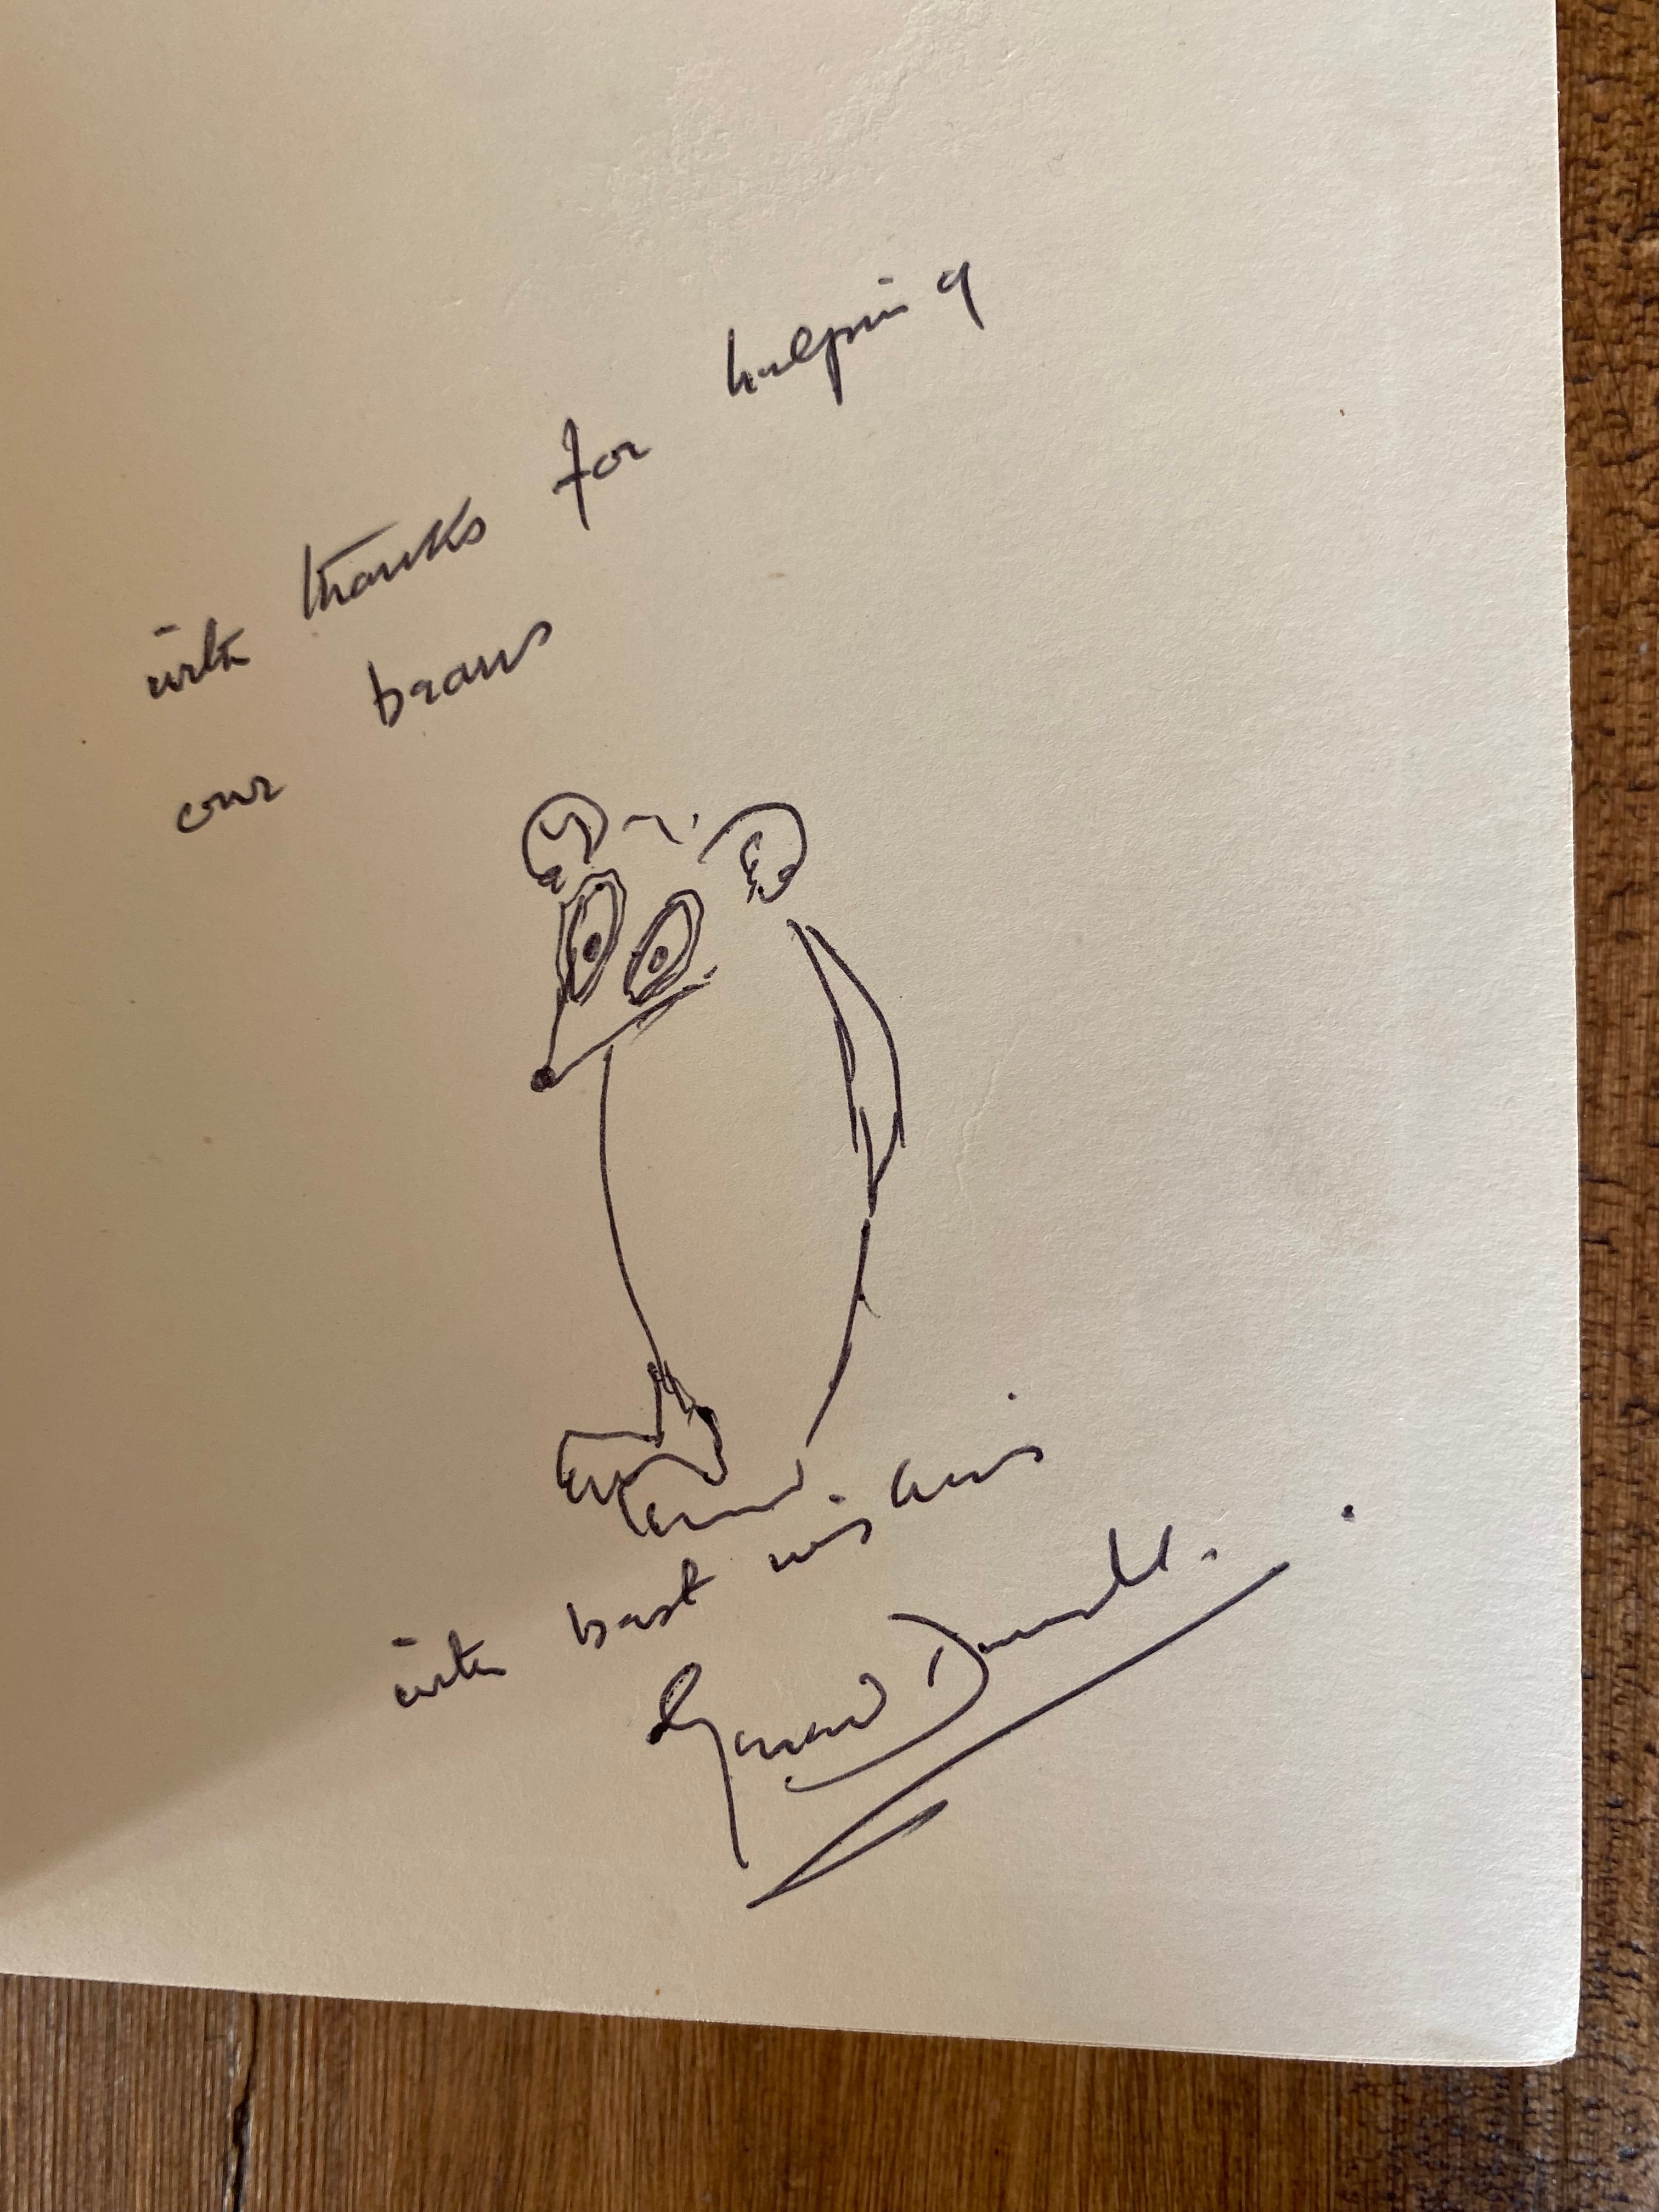 with thanks for helping
our bears
with best wishes
Gerald Durrell.